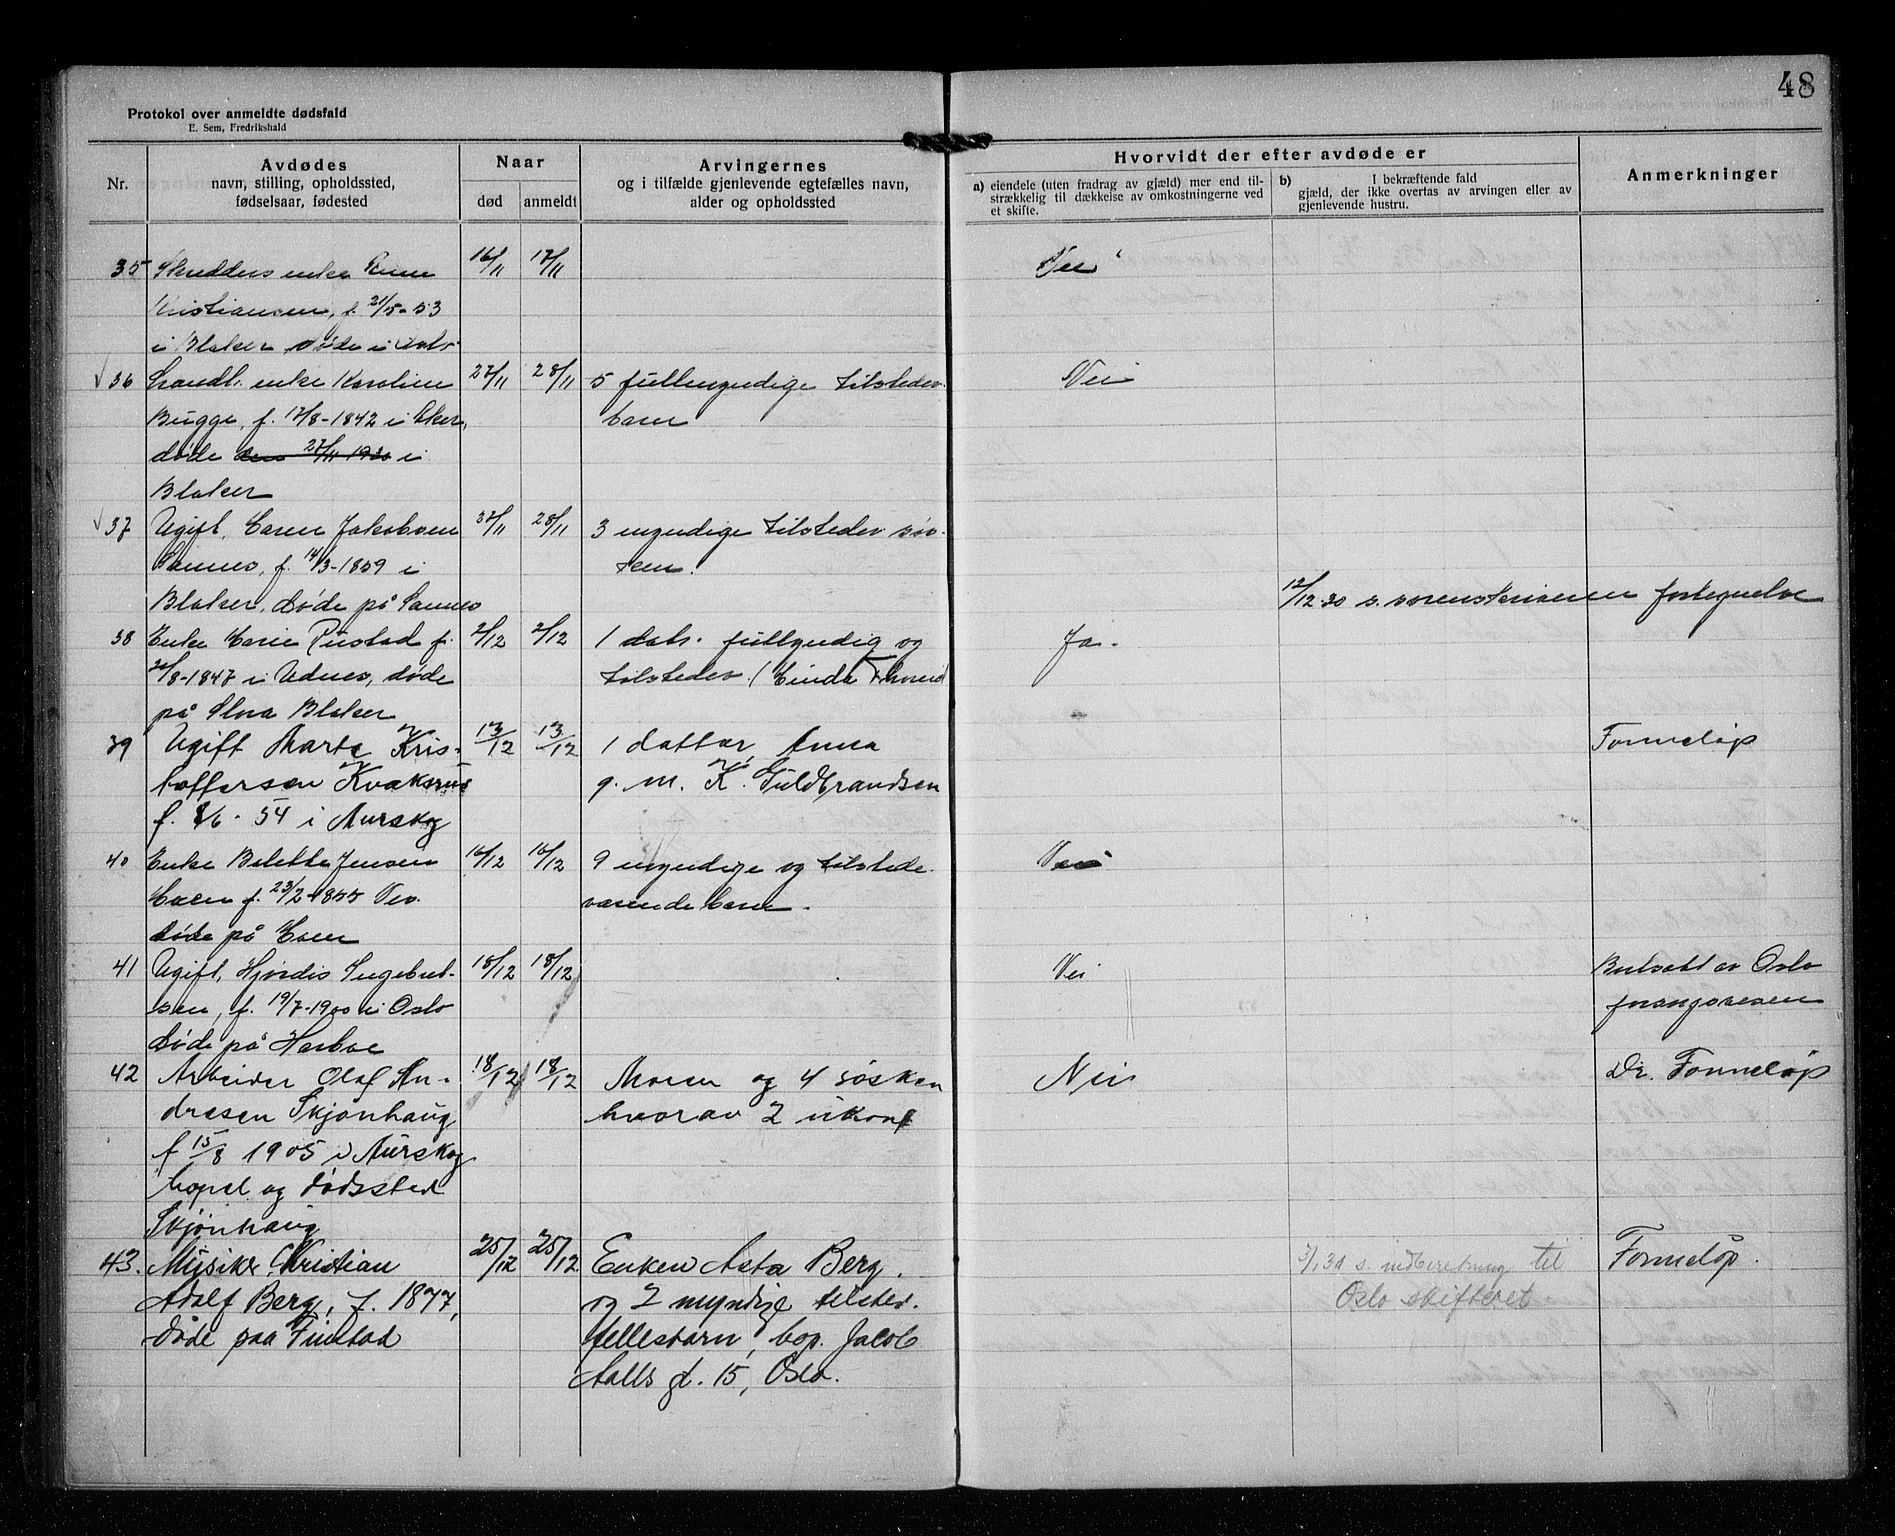 48
Protokol over anmeldte dødsfald
E. Sem, Fredrikshald
Nr.
Avdødes
navn, stilling, opholdssted,
fødselsaar, fødested
Naar
død
anmeldt
Arvingernes
og i tilfælde gjenlevende egtefælles navn,
alder og opholdssted
Hvorvidt der efter avdøde er
a) eiendele (uten fradrag av gjæld) mer end til-
strækkelig til dækkelse av omkostningerne ved
et skifte.
b) I bekræftende fald
gjæld, der ikke overtas av arvingen eller av
gjenlevende hustru.
Anmerkninger
35 Skredders enke
16/11 17/11
Nei
Kristiansen, f. 21/5-53
i Blaker, døde i
√ 36 Landh. enke Karoline
27/11 28/11
5 fullmyndige tilstedev.
Nei
Bugge, f. 17/8-1842 i Aker,
barn
døde den 27/11 1930 i
Blaker
√ 37 Ugift, Karen Jakobsen
27/11 28/11
3 myndige tilstedev. søs-
Sannes, f. 14/3-1859 i
ken.
Blaker, døde på Sannes
12/12.30 s. sorenskriveren fortegnelse
38 Enke Marie Rustad f.
2/12 2/12
1 datr. fullmyndig og
Ja.
/8-1847 i Udnes, døde
tilstedev. (
på Stora Blaker
39 Ugift Marte Kris-
13/12 13/12
1 datter, Anna
Fonneløp
toffersen Kvaksrud
g. m. K. Guldbrandsen
f. 8/6-54 i Aurskog
40 Enke Bolette Jensen
16/12 16/12
9 myndige og tilstede-
Nei
Haen f. 23/2-1855
værende barn.
døde på Haen
41 Ugift, Hjørdis Ingebret-
18/12 18/12
Nei
Bortsatt av Oslo
sen, f. 19/7-1900 i Oslo
forsorgsvesen
døde på Harboe
42 Arbeider Olaf An-
18/12 18/12
Moren og 4 søsken
Nei
Dr. Fonneløp
dresen Skjønhaug
hvorav 2 ukonf
f 15/8 1905 i Aurskog
bopæl og dødssted
Skjønhaug
43. Musiker Kristian
25/12 25/12
Enken Asta Berg.
3/1 31 s. indberetning til
Fonneløp.
Adolf Berg, f. 1877,
og 2 myndige tilsted.
Oslo skifteret
døde paa Finstad
fellesbarn, bop. Jacob
Aalls gt. 15, Oslo.